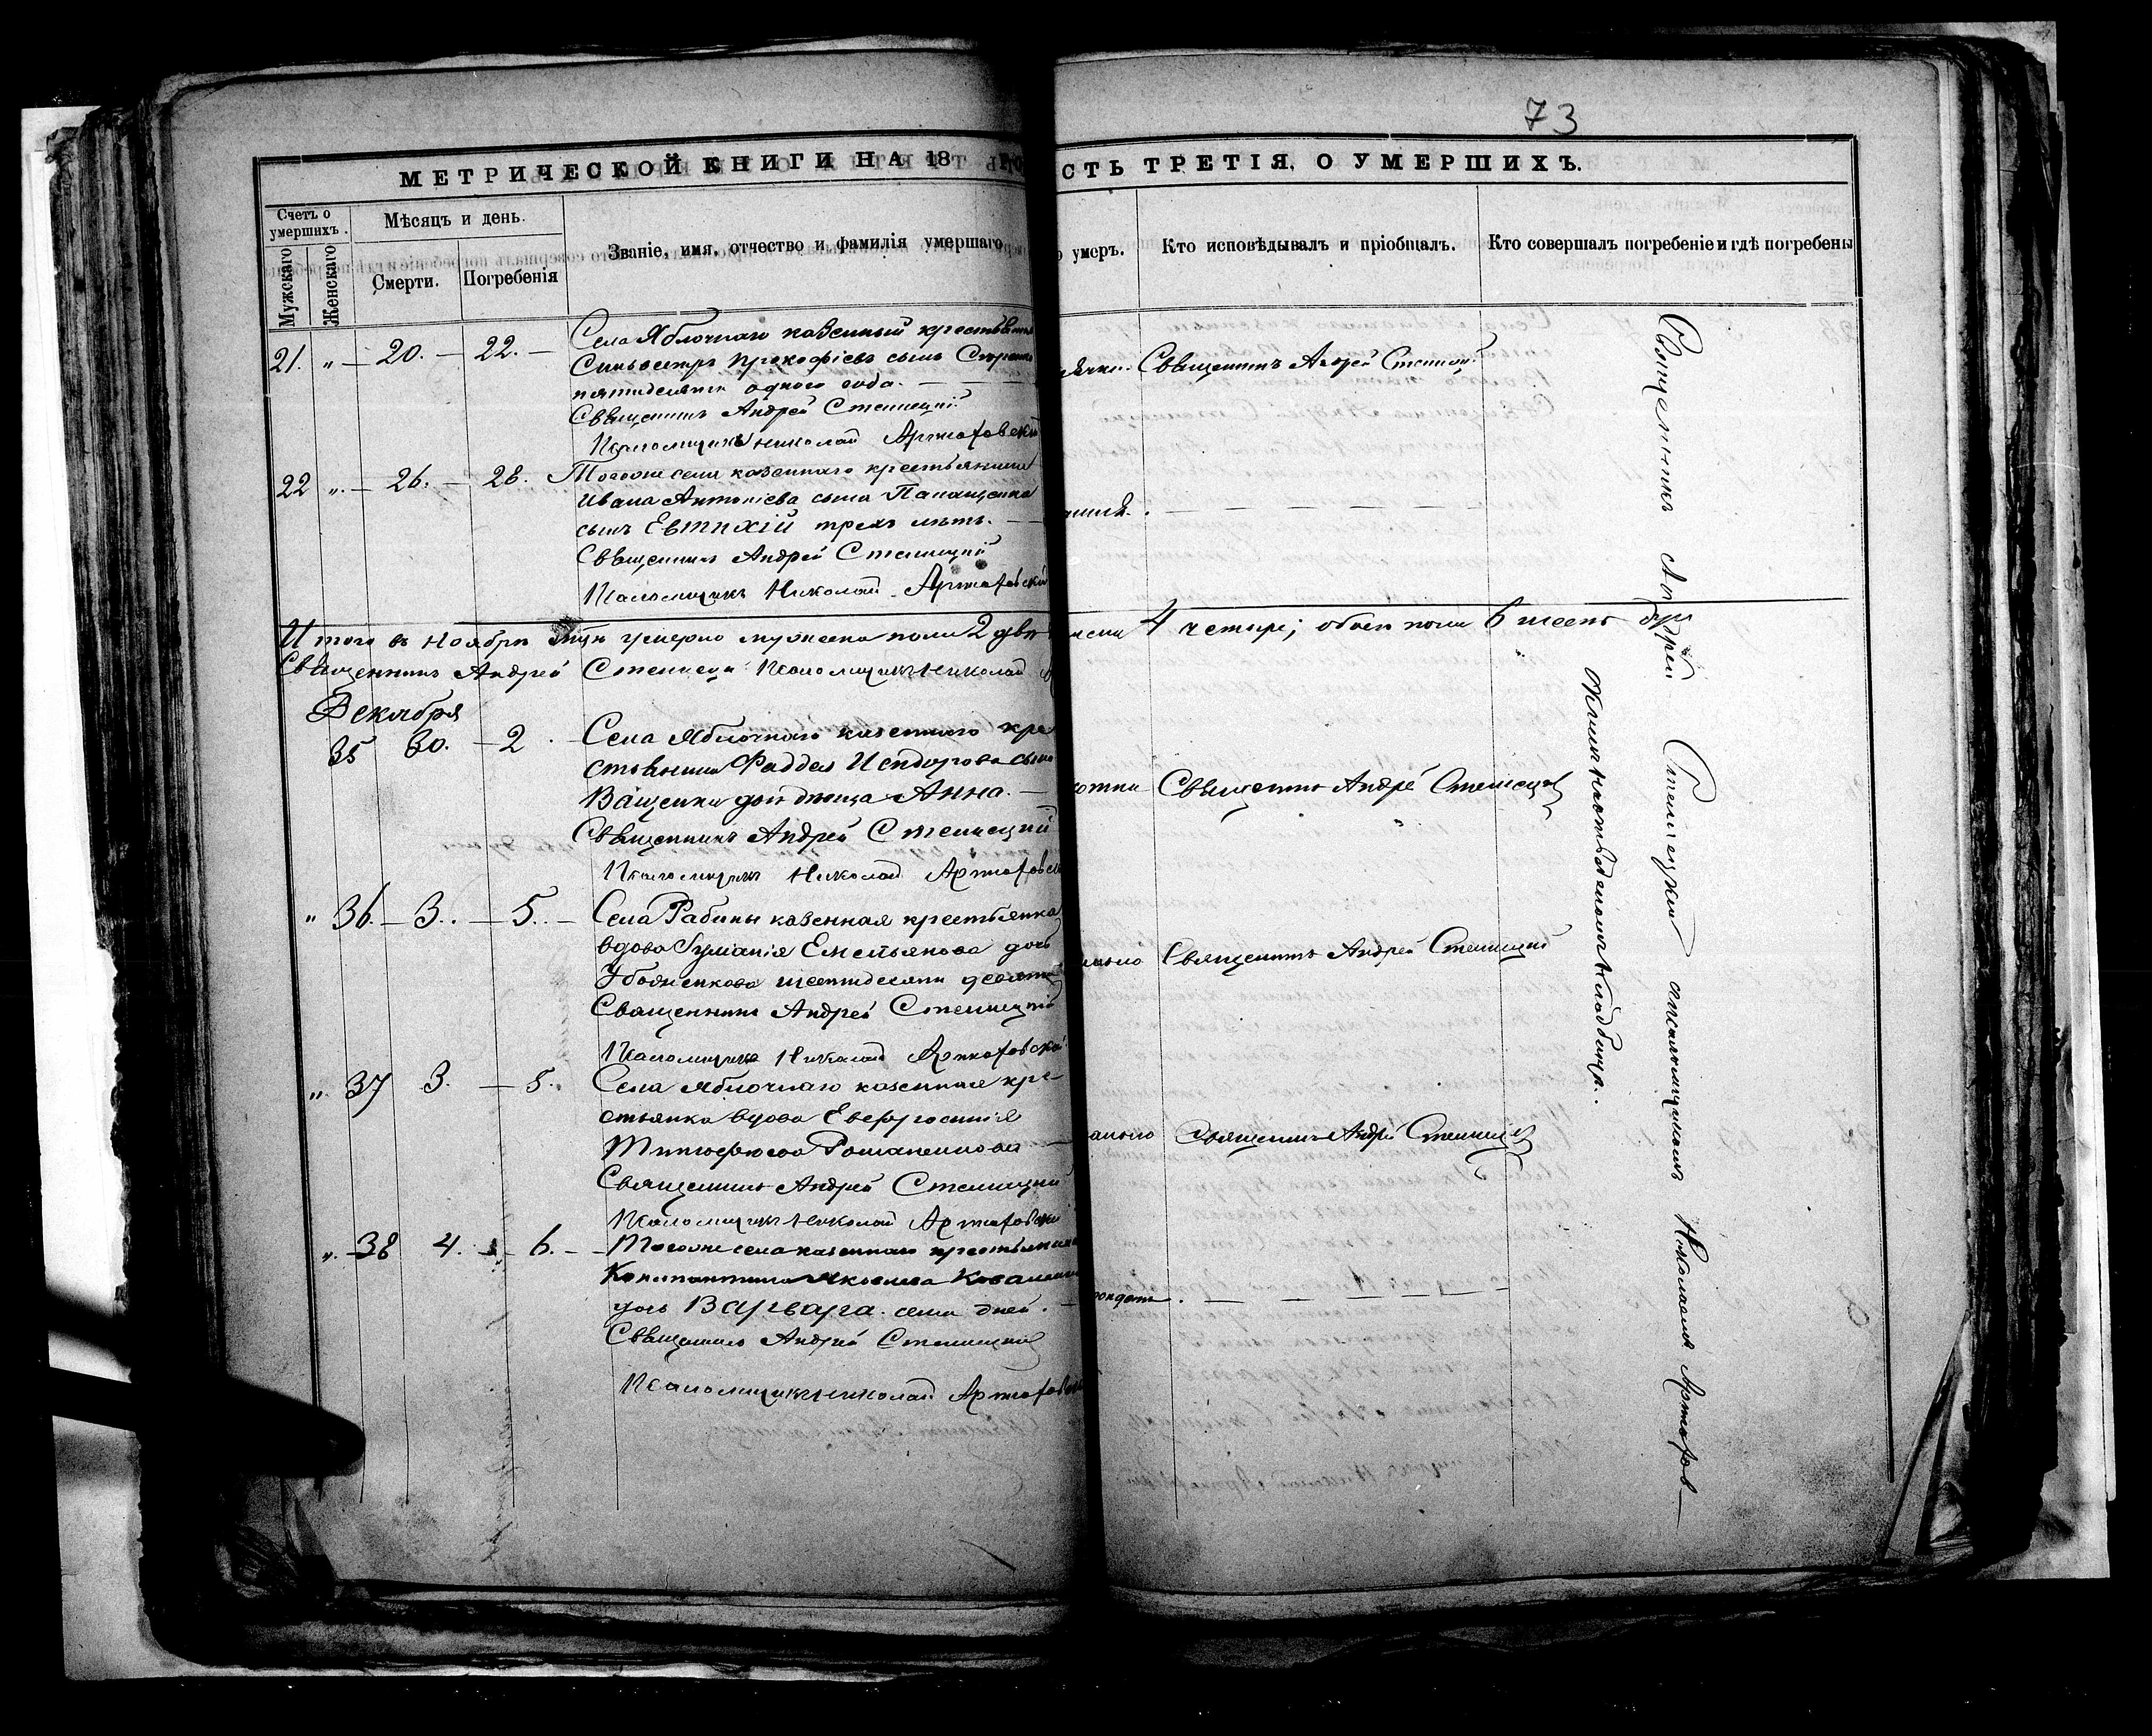 73
МЕТРИЧЕСКОЙ КНИГИ НА 18
СТЬ ТРЕТІЯ, О УМЕРШИХЪ.
Счетъ о умершихъ.
Мужскаго
Женскаго
Мѣсяцъ и день.
Смерти.
Погребенія
Званіе, имя, отчество и фамилія умершаго
умеръ.
Кто исповѣдывалъ и пріобщалъ.
Кто совершалъ погребеніе и гдѣ погребены
21. " — 20. — 22. — Села Яблочнаго казенный крестьянинъ
Сильвестръ Прокофіевъ сынъ
пятидесяти одного года. —
Священникъ Андрей Стеллецкій
Псаломщикъ Николай Артюховскій
Священникъ Андрей
22 ". — 26. — 28. Тогоже села казеннаго крестьянина
Ивана Антоніева сына Панащенка
сынъ Евтихій трехъ лѣтъ. —
Священникъ Андрей Стеллецкій
Псаломщикъ Николай Артюховскій
Итого въ Ноябрѣ мцѣ умерло мужеска пола 2 два
4 четыре; обоего пола 6 шесть
Священникъ Андрей Стеллецкій Псаломщикъ Николай
Декабря
35 30. — 2. Села Яблочнаго казеннаго кре
стьянина Фаддея Исидорова сына
Ващенка дочь Анна. —
Священникъ Андрей Стеллецкій
Псаломщикъ Николай Артюховск
Священникъ Андрей Стеллецкій
" 36. — 3. — 5. — Села Рабины казенная крестьянка
вдова Емельянова дочь
шестидесяти девяти
Священникъ Андрей Стеллецкій
Псаломщикъ Николай Артюховской
Священникъ Андрей Стеллецкій
" 37 3. — 5. Села Яблочнаго казенная кре-
стьянка вдова Евфросинія
Священникъ Андрей Стеллецкій
Псаломщикъ Николай Артюховскій
Священникъ Андрей Стеллецкій
". — 38 4. — 6. — Тогоже села казеннаго крестьянина
Константина Яковлева
дочь Варвара. семи дней. —
Священникъ Андрей Стеллецкій
Псаломщикъ Николай Артюховск
Священникъ Андрей Стеллецкій Николаемъ Артюхов